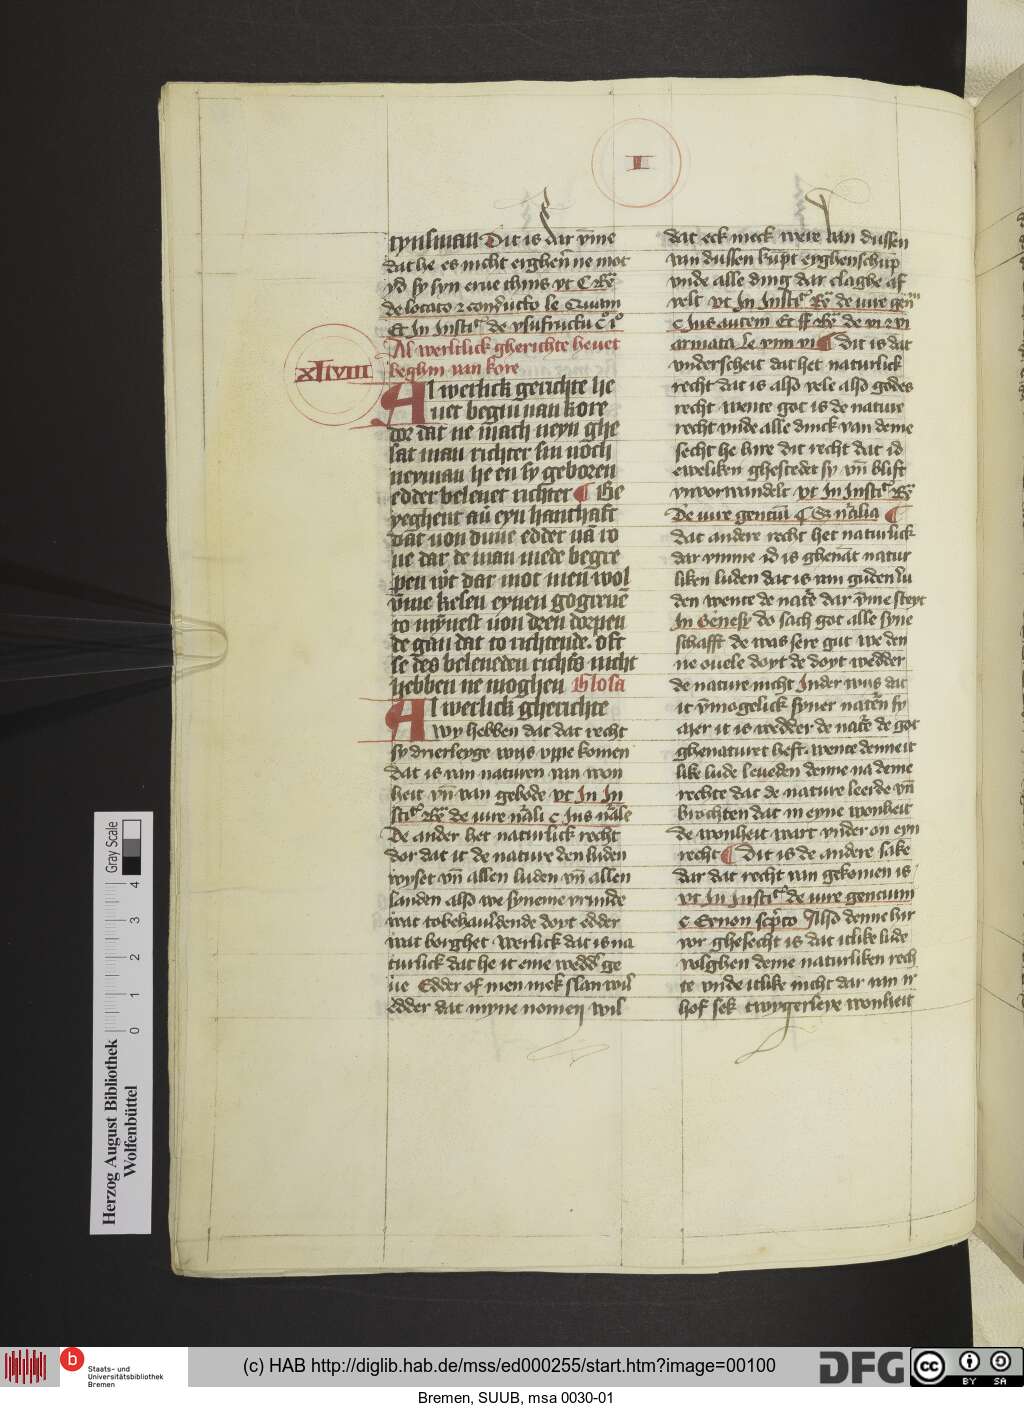 I
tynsman Dit is dar v̄me
dat he es nicht eighen̄ ne mot
yd sy syn erue thins vt C Ry̆
de locato ⁊ conducto le Quam
Et In Insti᷑ de vsufructu c̊ i̊
Al werltlick gherichte heuet
beghin van kore
xlviii
Al werlick gerichte he
uet begin uan kore
dor dat ne mach neyn ghe
sat man richter sin noch
neyman he en sy geboren
edder belenet richter ¶ Be
yeghent au̅ eyn hanthaft
dat von duue edder va̅ ro
ue dar de man mede begre
pen wt dar mot men wol
v̄me kesen eynen gogreue̅
to myn̄est uon dren dorpen
de gan dat to richtende. oft
se des beleneden richt̄s nicht
hebben ne moghen Glosa
Al werlick gherichte
Wy hebben dat dat recht
sy drierleyge wijs vppe komen
dat is van naturen van won
heit vn̄ van gebode vt In In
sti᷑ Ry̆ de iure n̄ali c Jus n̄ale
De ander het naturlick recht
dor dat it de nature den luden
wyset vn̄ allen luden vn̄ allen
landen also we syneme vrunde
wat tobehaldende doyt edder
wat borghet werlick dat is na
turlick dat he it eme wedd̄ ge
ue Edder of men mek slan wil
edder dat myne nomen wil
dat eck meck were van dussen
van dussen ku̅pt eyghenschup
vnde alle ding dar claghe af
velt vt In Insti᷑ Ry̆ de iure gen̄
c Jus autem Et ff Ry̆ de vi ⁊ vi
armata le vim vi ¶ Dit is dat
vnderscheit dat het naturlick
recht dat is also vele also godes
recht wente got is de nature
recht vnde alle dinck van deme
secht he hire dit recht dat id
eweliken ghestedet sy vn̄ blift
vnvorwandelt vt In Insti᷑ Ry̆
De iure gentiu̅ C S; n̄alia ¶
dat andere recht het naturlick
dar vmme id is ghena̅t natur
liken luden dat is van guden lu
den wente de nat̄e dar v̄me steyt
In Genesy do sach got alle syne
schafft de was sere gut we den
ne ouele doyt de doyt wedder
de nature nicht Inder wijs dat
it v̄mogelick syner nat̄en sy
mer it is wedder de nat̄e de got
ghenaturet heft. wente denne it
like lude leueden denne na deme
rechte dat de nature leerde vn̄
brochten dat in eyne wonheit
de wonheit wart vnder on eyn
recht ¶ Dit is de andere sake
dar dat recht van gekomen is
vt In Insti᷑ de iure gentium
c Et non sc̄pto Also denne hir
vor ghesecht is dat itlike lude
volghen deme naturliken rech
te vnde itlike nicht dar van ir
hof sek twygerleye wonheit
Gray Scale
0 1 2 3 4
Herzog August Bibliothek
Wolfenbüttel
b
Staats- und
Universitätsbibliothek
Bremen
(c) HAB http://diglib.hab.de/mss/ed000255/start.htm?image=00100
DFG
cc
BY SA
Bremen, SUUB, msa 0030-01